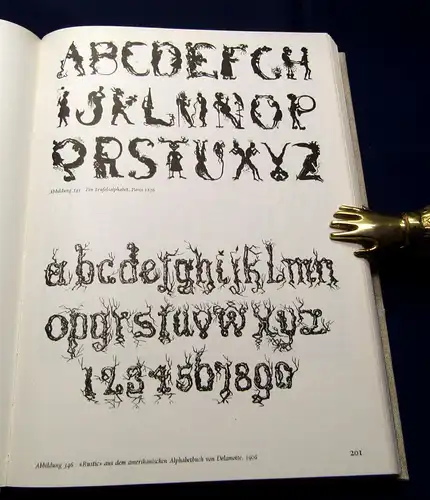 ABCDEFGH
IJKLMNOP
QRSTUXYZ
Abbildung 345 Ein Teufelsalphabet, Paris 1835
abcdefghijklmn
opqrstuvwxyz
1234567890
Abbildung 346 «Rustic» aus dem amerikanischen Alphabetbuch von Delamotte, 1906
201